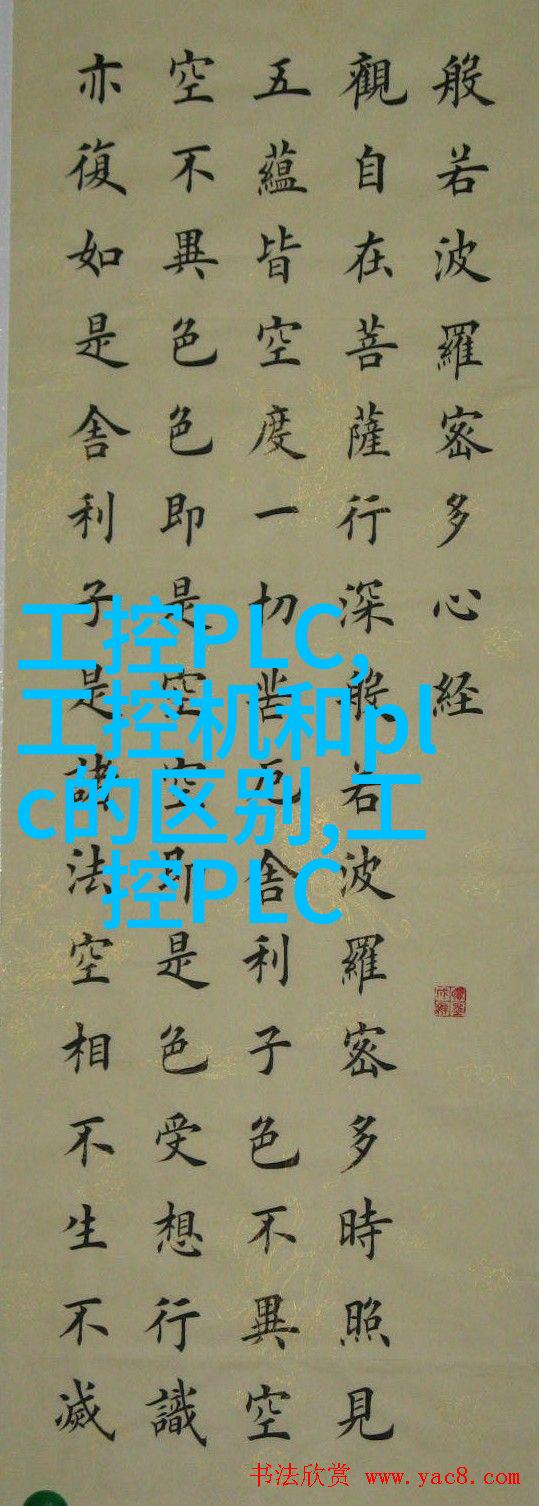 般若波羅密多心経
觀自在菩薩行深般若波羅密多時照見
五蘊皆空度一切苦厄舍利子色不異空
空不異色色即是空空即是色受想行識
亦復如是舍利子是諸法空相不生不滅
工控PLC,
工控机和pl
c的区别,工
控PLC
书法欣赏 www.yac8.com